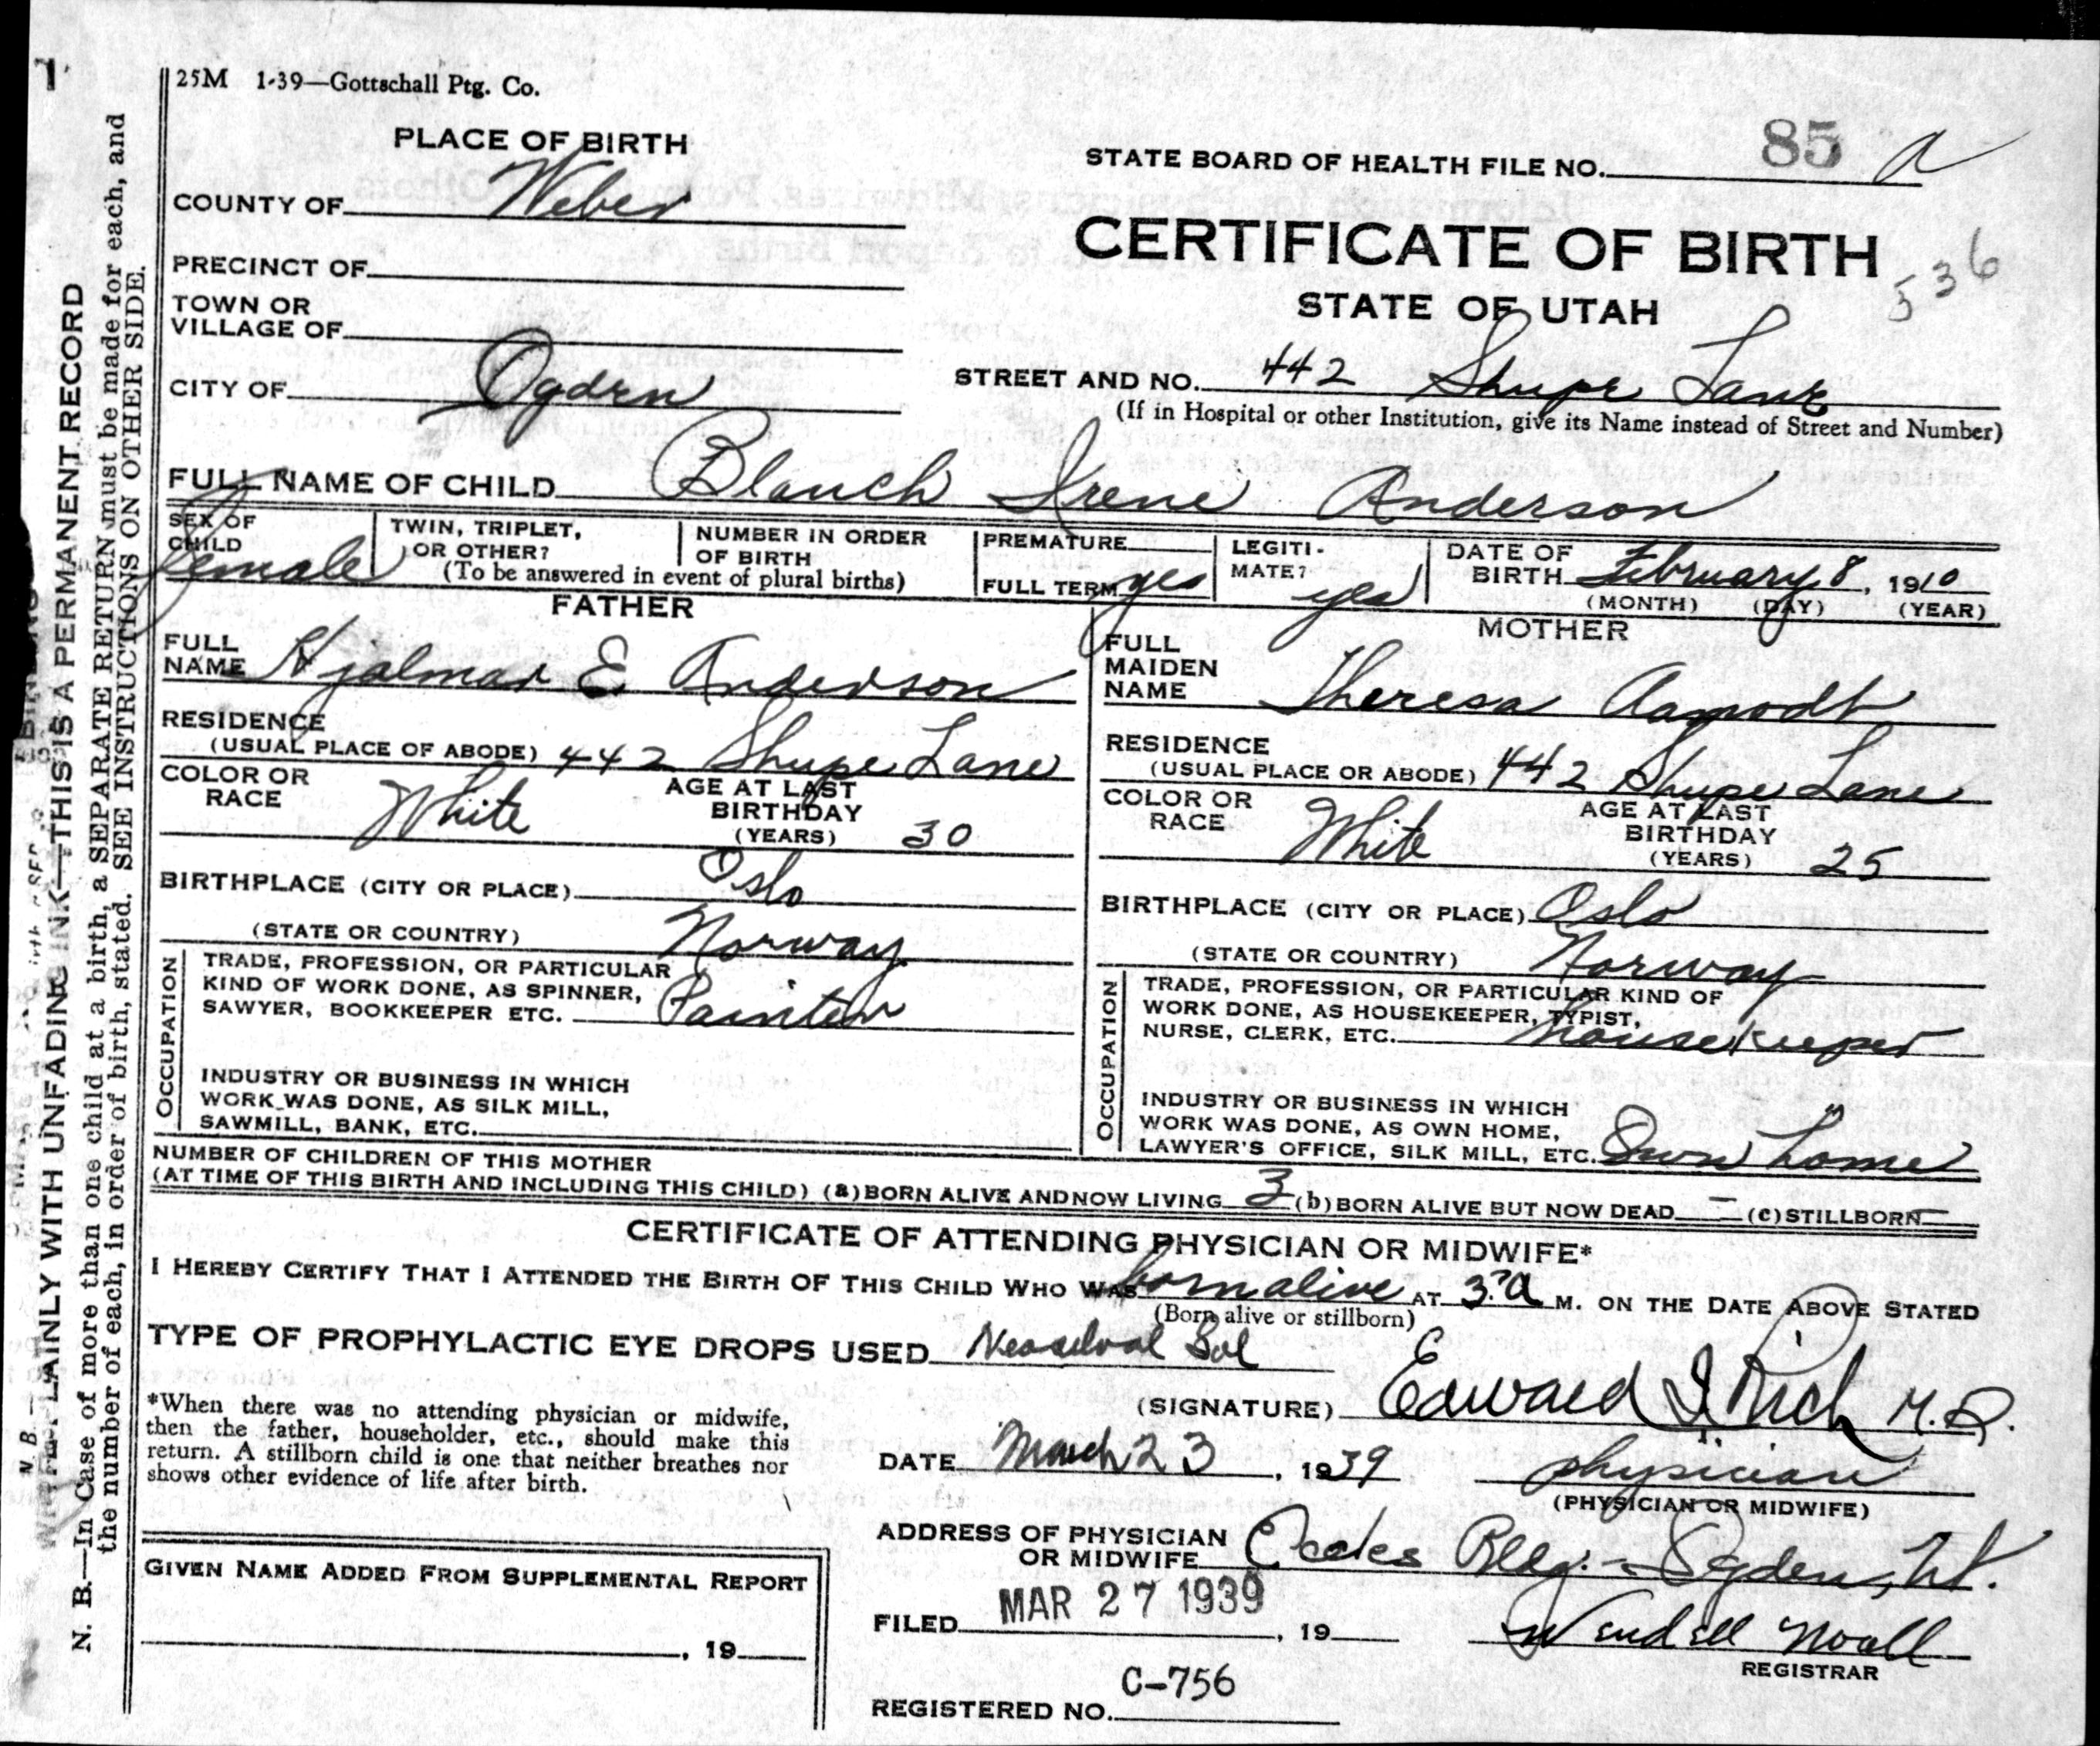 1
25M 1-39—Gottschall Ptg. Co.
PLACE OF BIRTH
STATE BOARD OF HEALTH FILE NO. 85 a
COUNTY OF Weber
CERTIFICATE OF BIRTH
536
PRECINCT OF
STATE OF UTAH
TOWN OR
VILLAGE OF
CITY OF Ogden
STREET AND NO. 442 Shupe Lane
(If in Hospital or other Institution, give its Name instead of Street and Number)
FULL NAME OF CHILD Blanch Irene Anderson
SEX OF CHILD female
TWIN, TRIPLET, OR OTHER?
NUMBER IN ORDER OF BIRTH
(To be answered in event of plural births)
PREMATURE
FULL TERM yes
LEGITIMATE? yes
DATE OF BIRTH February 8, 1910
(MONTH) (DAY) (YEAR)
FATHER
FULL NAME Hjalmar E Anderson
RESIDENCE
(USUAL PLACE OF ABODE) 442 Shupe Lane
COLOR OR RACE White
AGE AT LAST BIRTHDAY (YEARS) 30
BIRTHPLACE (CITY OR PLACE) Oslo
(STATE OR COUNTRY) Norway
OCCUPATION
TRADE, PROFESSION, OR PARTICULAR
KIND OF WORK DONE, AS SPINNER,
SAWYER, BOOKKEEPER ETC. Painter
INDUSTRY OR BUSINESS IN WHICH
WORK WAS DONE, AS SILK MILL,
SAWMILL, BANK, ETC.
MOTHER
FULL MAIDEN NAME Theresa Aamodt
RESIDENCE
(USUAL PLACE OR ABODE) 442 Shupe Lane
COLOR OR RACE White
AGE AT LAST BIRTHDAY (YEARS) 25
BIRTHPLACE (CITY OR PLACE) Oslo
(STATE OR COUNTRY) Norway
OCCUPATION
TRADE, PROFESSION, OR PARTICULAR KIND OF
WORK DONE, AS HOUSEKEEPER, TYPIST,
NURSE, CLERK, ETC. housekeeper
INDUSTRY OR BUSINESS IN WHICH
WORK WAS DONE, AS OWN HOME,
LAWYER'S OFFICE, SILK MILL, ETC. Own home
NUMBER OF CHILDREN OF THIS MOTHER
(AT TIME OF THIS BIRTH AND INCLUDING THIS CHILD) (a) BORN ALIVE AND NOW LIVING 3 (b) BORN ALIVE BUT NOW DEAD — (c) STILLBORN —
CERTIFICATE OF ATTENDING PHYSICIAN OR MIDWIFE*
I HEREBY CERTIFY THAT I ATTENDED THE BIRTH OF THIS CHILD WHO WAS born alive AT 3 a M. ON THE DATE ABOVE STATED
(Born alive or stillborn)
TYPE OF PROPHYLACTIC EYE DROPS USED Sol
(SIGNATURE) Edward I Rich M.D.
*When there was no attending physician or midwife,
then the father, householder, etc., should make this
return. A stillborn child is one that neither breathes nor
shows other evidence of life after birth.
DATE March 23, 1939
physician
(PHYSICIAN OR MIDWIFE)
ADDRESS OF PHYSICIAN
OR MIDWIFE Eccles Bldg. - Ogden, Ut.
GIVEN NAME ADDED FROM SUPPLEMENTAL REPORT
, 19
FILED MAR 27 1939, 19
Wendell Noall
REGISTRAR
REGISTERED NO. C-756
WRITE PLAINLY WITH UNFADING INK—THIS IS A PERMANENT RECORD
N. B.—In Case of more than one child at a birth, a SEPARATE RETURN must be made for each, and
the number of each, in order of birth, stated. SEE INSTRUCTIONS ON OTHER SIDE.